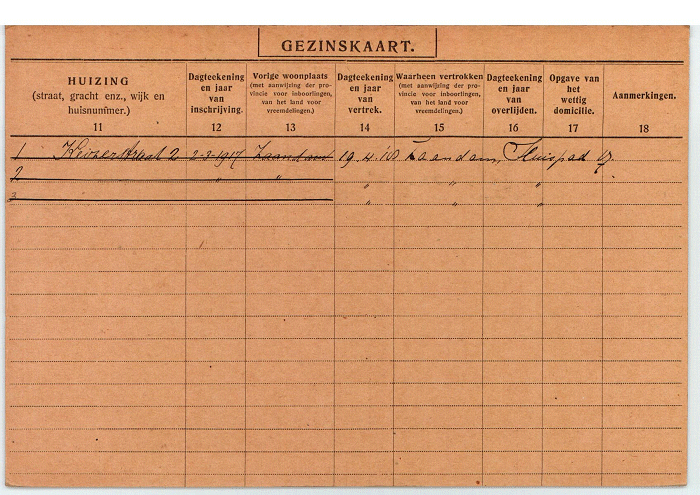 GEZINSKAART.
HUIZING
(straat, gracht enz., wijk en
huisnummer.)
11
Dagteekening
en jaar
van
inschrijving.
12
Vorige woonplaats
(met aanwijzing der pro-
vincie voor inboorlingen,
van het land voor
vreemdelingen.)
13
Dagteekening
en jaar
van
vertrek.
14
Waarheen vertrokken
(met aanwijzing der pro-
vincie voor inboorlingen,
van het land voor
vreemdelingen.)
15
Dagteekening
en jaar
van
overlijden.
16
Opgave van
het
wettig
domicilie.
17
Aanmerkingen.
18
1 Keizerstraat 2 2-3-1917 Zaandam 19-4-'18 Zaandam,
2 " " " " "
3 " " "